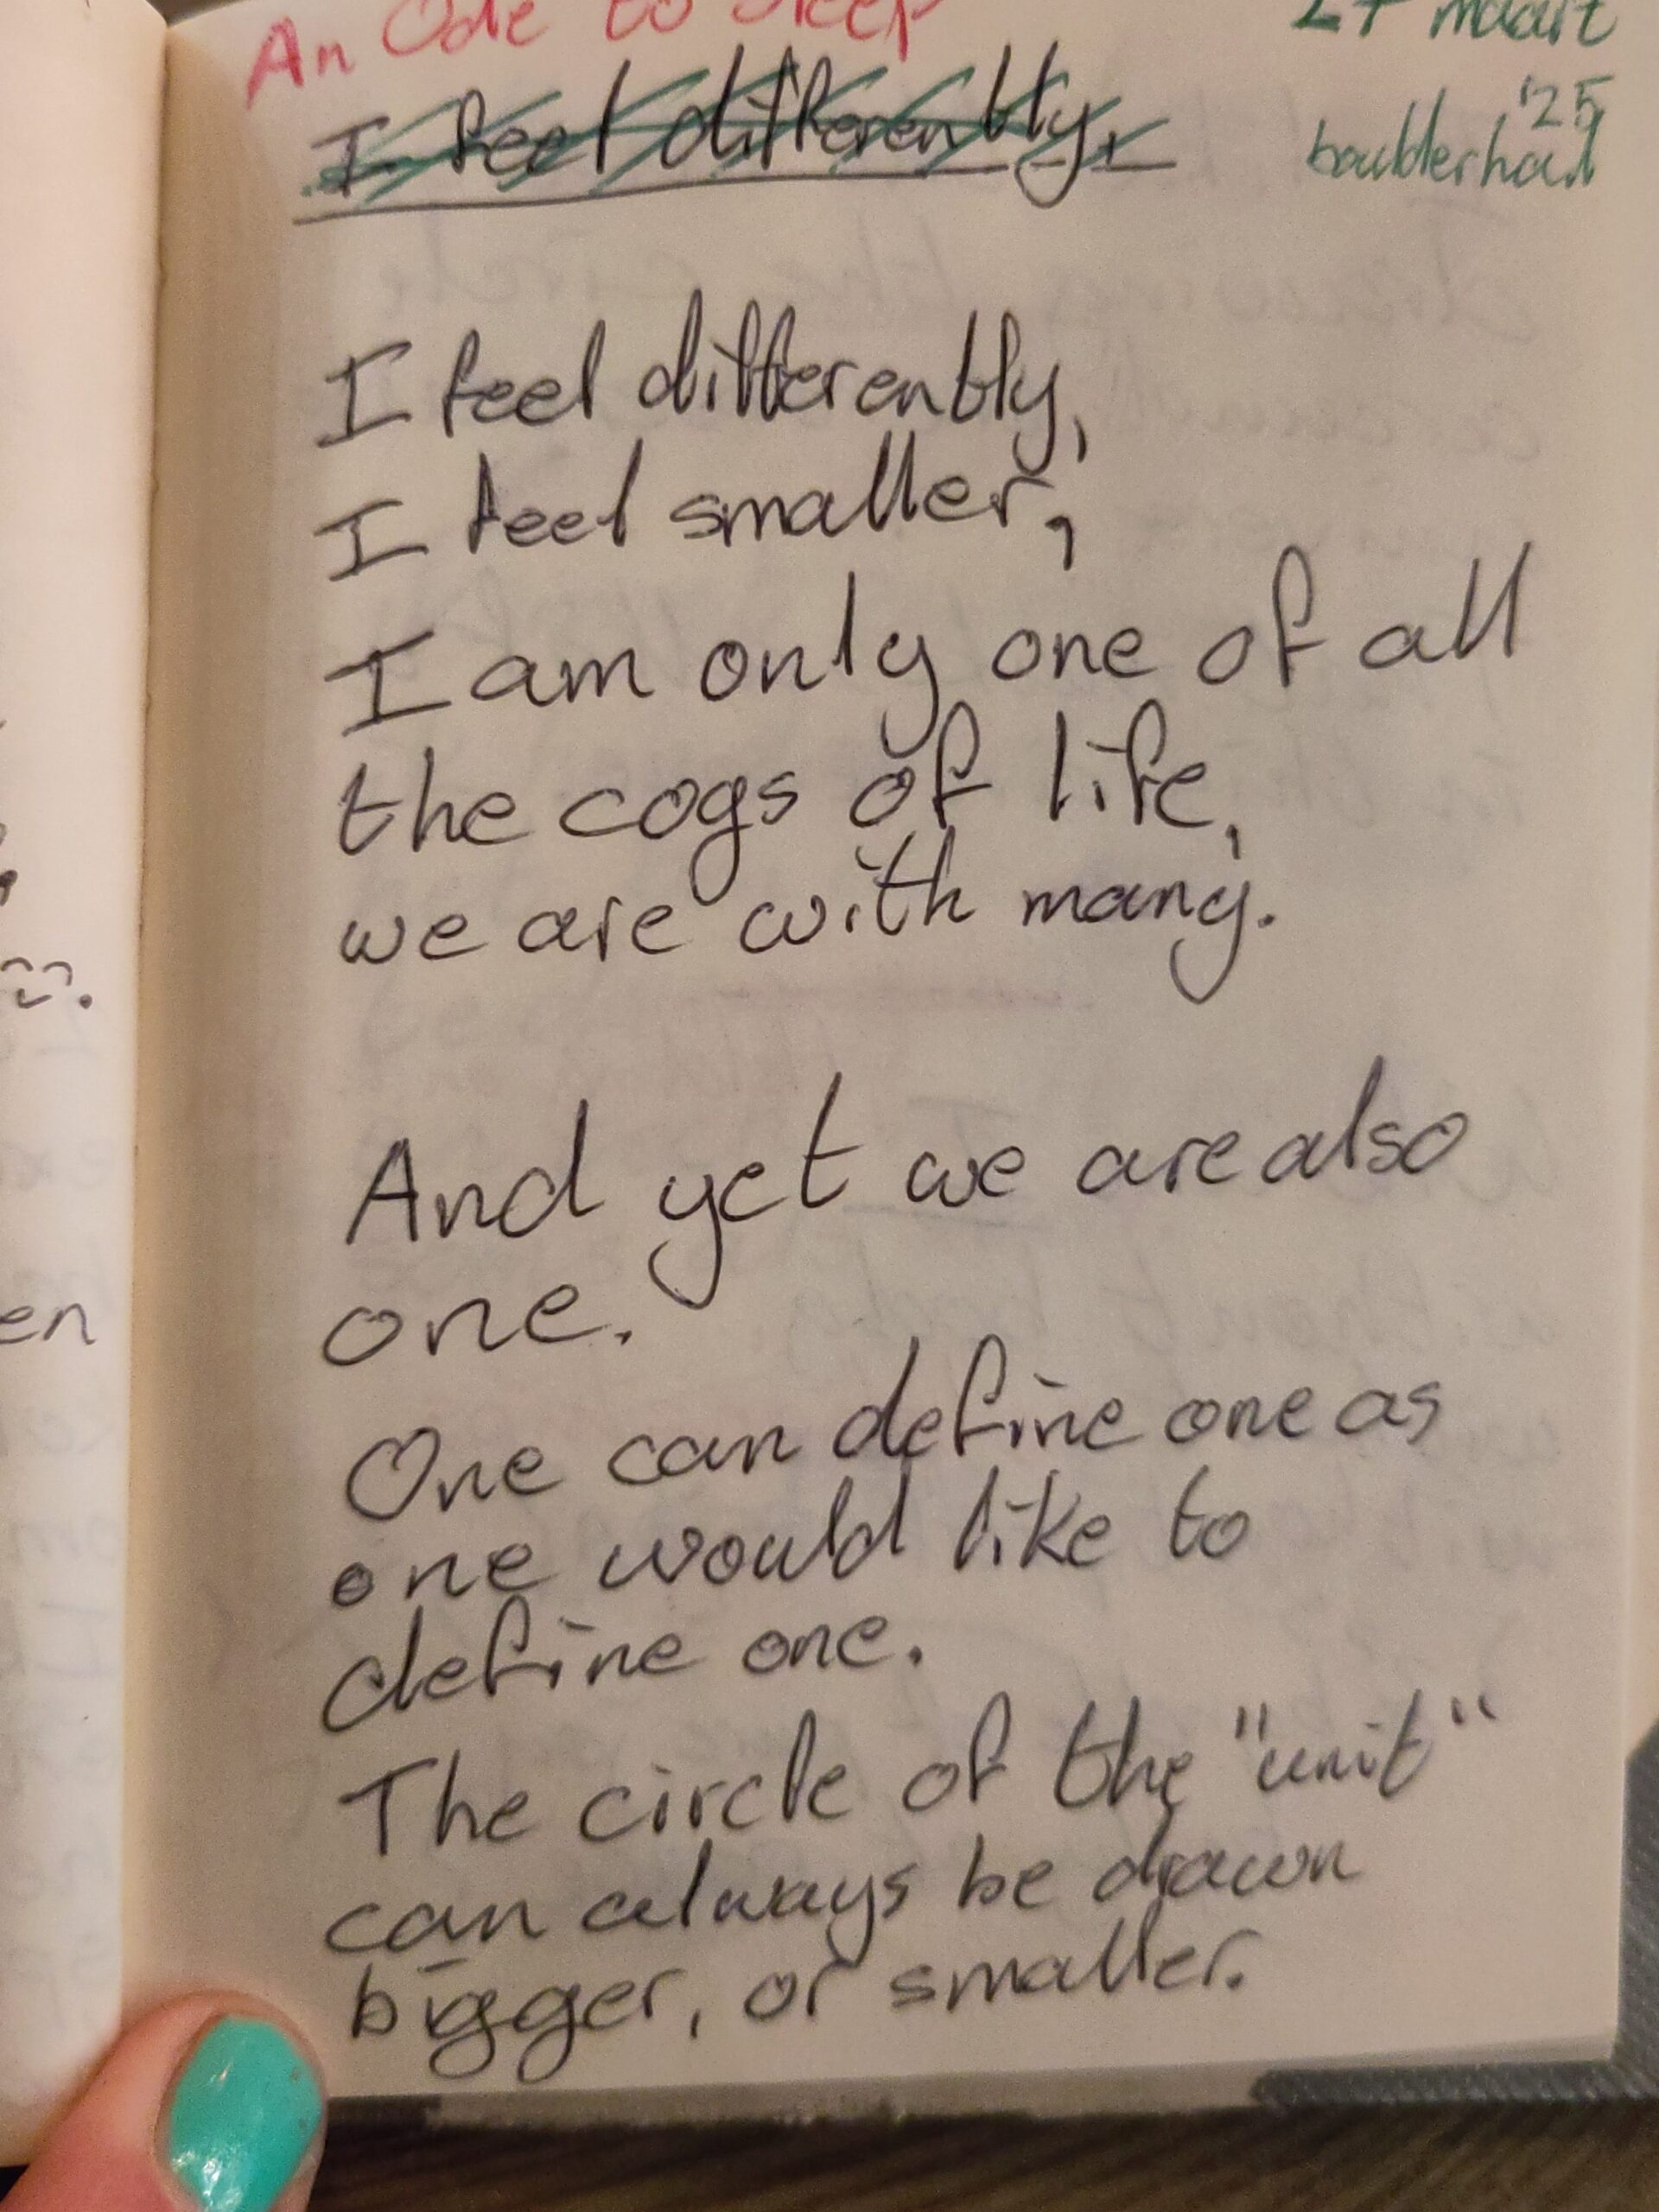 An Ode to Sleep
27 maart
'25
boulderhal
I feel differently,
I feel differently,
I feel smaller,
I am only one of all
the cogs of life,
we are with many.
And yet we are also
one.
One can define one as
one would like to
define one.
The circle of the "unit"
can always be drawn
bigger, or smaller.
en